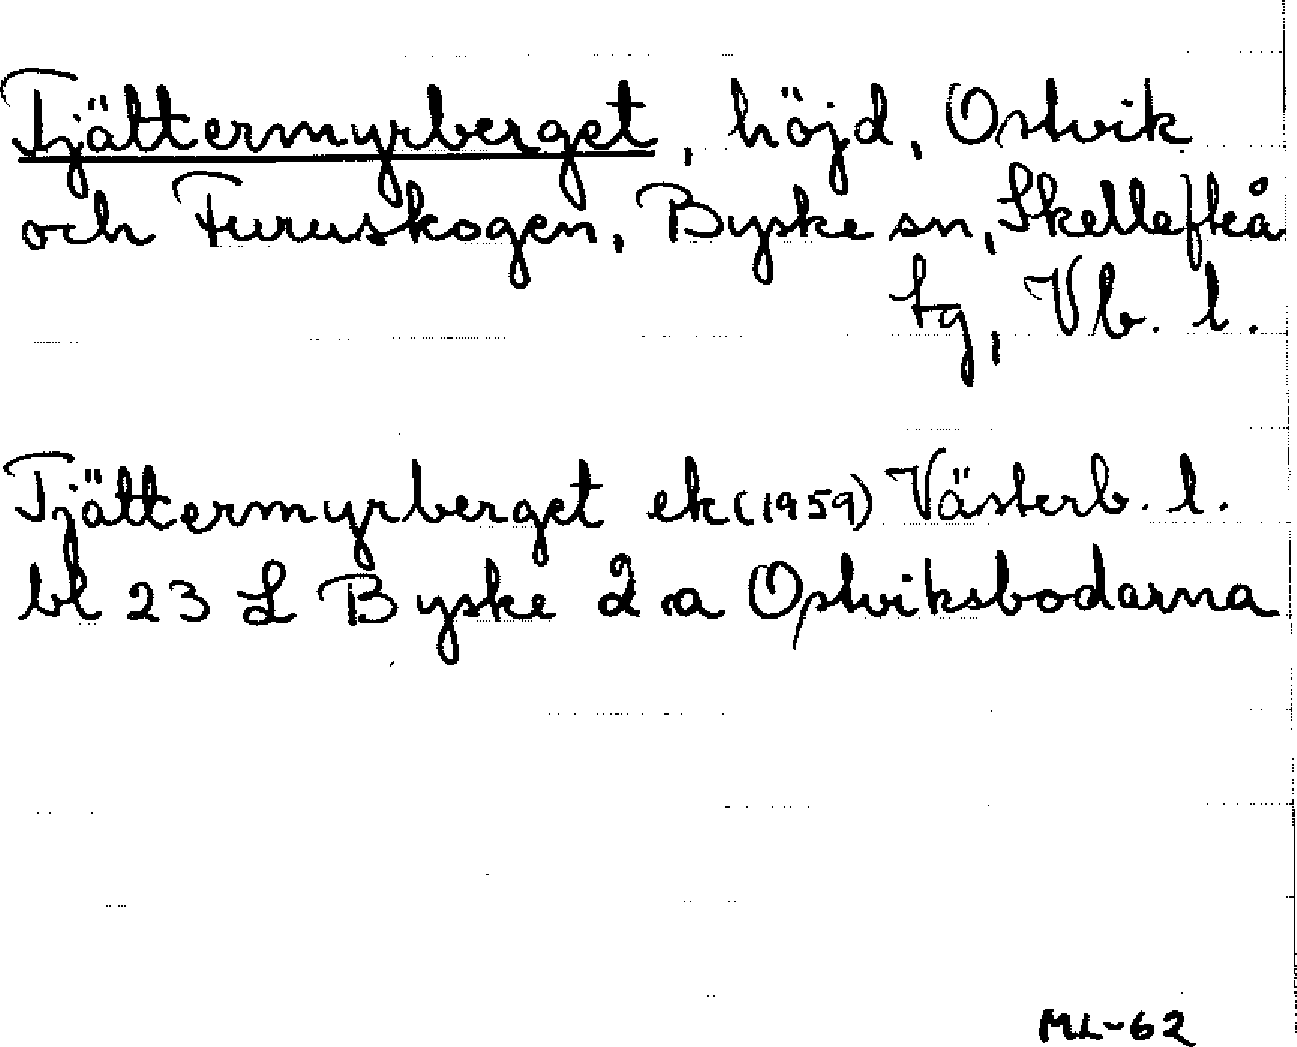 Tjättermyrberget, höjd, Ostvik
och Furuskogen, Byske sn, Skellefteå
tg, Vb. l.
Tjättermyrberget ek (1959) Västerb. l.
bl 23 L Byske 2 a Ostviksbodarna
ML-62